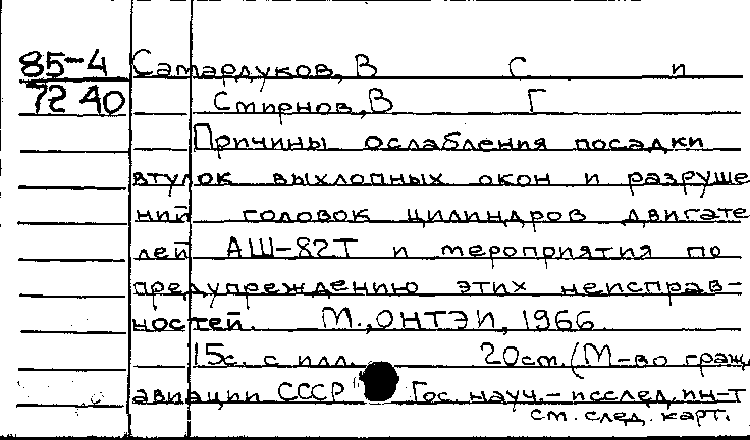 85-4 Самардуков, В С и
7240 Смирнов, В Г
Причины ослабления посадки
втулок выхлопных окон и разруше
ний головок цилиндров двигате
лей АШ-82Т и мероприятия по
предупреждению этих неисправ-
ностей. М., ОНТЭИ, 1966.
15с. с илл. 20см. (М-во гражд
авиации СССР Гос. науч.-исслед. ин-т
см. след. карт.